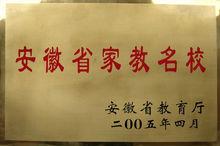 安徽省家教名校
安徽省教育厅
二00五年四月